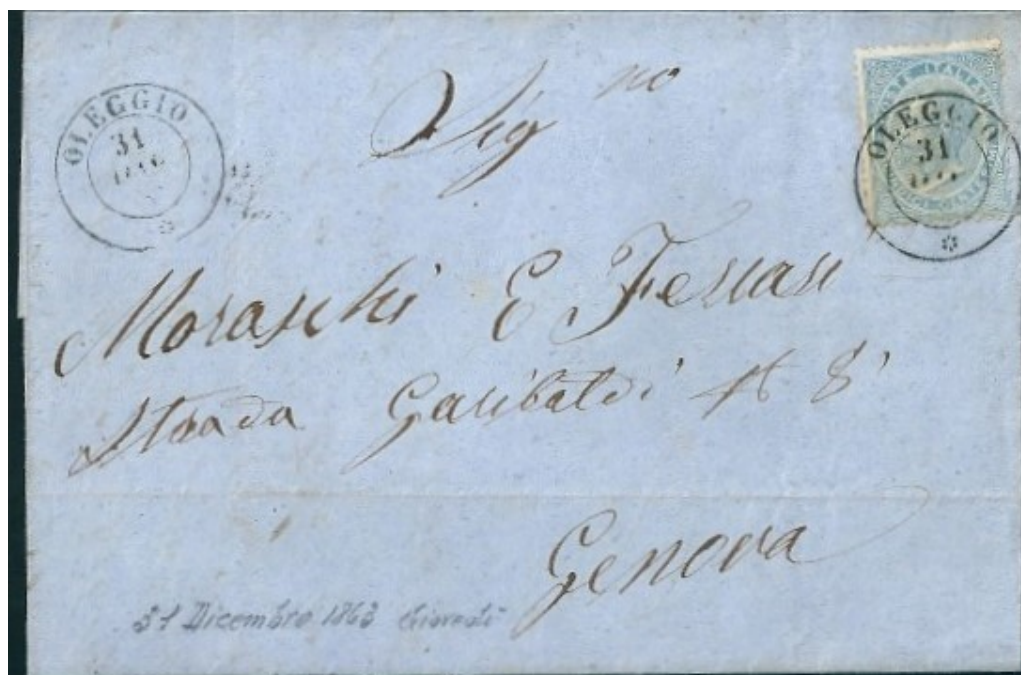 OLEGGIO
31
OLEGGIO
31
Sig no
Moraschi E Ferrari
Strada Garibaldi N 8
Genova
31 Dicembre 1863 Giovedi